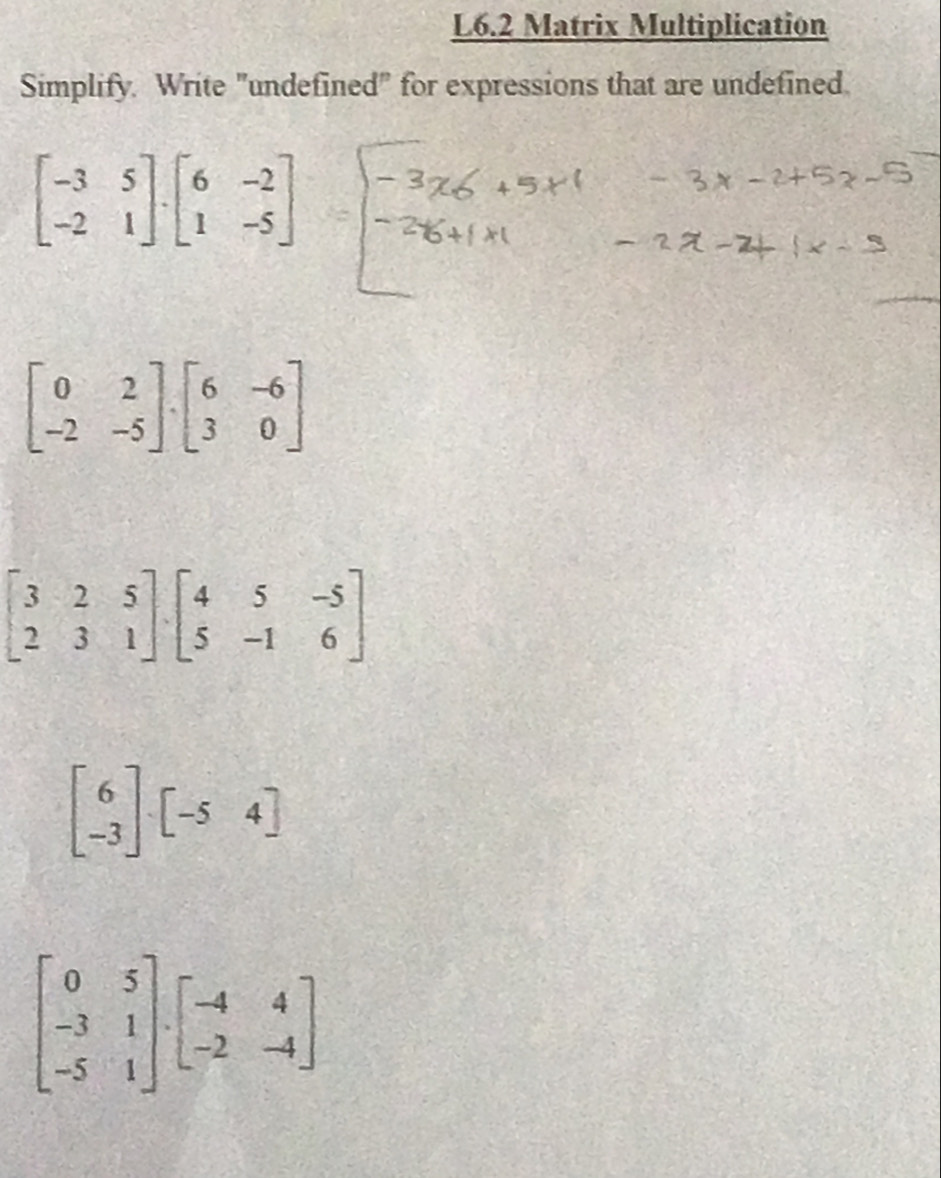 L6.2 Matrix Multiplication
Simplify. Write "undefined" for expressions that are undefined.
[-3 5] . [6 -2] = [-3x6 +5x1 -3x-2+5x-5
[-2 1] [1 -5] -2x6+1x1 -2x-2+1x-5
[0 2] . [6 -6]
[-2 -5] [3 0]
[3 2 5] . [4 5 -5]
[2 3 1] [5 -1 6]
[6] . [-5 4]
[-3]
[0 5] . [-4 4]
[-3 1] [-2 -4]
[-5 1]